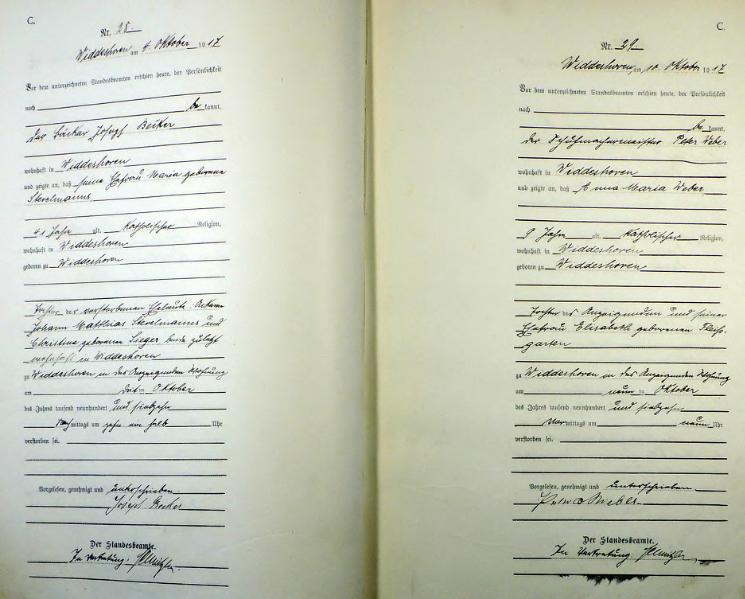 C.
Nr. 28
Widdeshoven am 4. Oktober 1917
Vor dem unterzeichneten Standesbeamten erschien heute, der Persönlichkeit
nach
be kannt,
der Bäcker Joseph
wohnhaft in Widdeshoven
und zeigte an, daß seine Ehefrau Maria geborene
41 Jahre alt, katholischer Religion,
wohnhaft in Widdeshoven
geboren zu Widdeshoven
Tochter der verstorbenen Eheleute
Johann Matthias und
Christina geborenen beide zuletzt
wohnhaft in Widdeshoven
zu Widdeshoven in des Anzeigenden Wohnung
am drei ten Oktober
des Jahres tausend neunhundert und siebzehn
Nach mittags um zehn ein halb Uhr
verstorben sei.
Vorgelesen, genehmigt und unterschrieben
Joseph
Der Standesbeamte.
In Vertretung:
C.
Nr. 29
Widdeshoven, am 10. Oktober 1917
Vor dem unterzeichneten Standesbeamten erschien heute, der Persönlichkeit
nach
be kannt,
der Schuhmachermeister Peter Weber
wohnhaft in Widdeshoven
und zeigte an, daß Anna Maria Weber
9 Jahre alt, katholischer Religion,
wohnhaft in Widdeshoven
geboren zu Widdeshoven
Tochter des Anzeigenden und seiner
Ehefrau Elisabeth geborenen
garten
zu Widdeshoven in des Anzeigenden Wohnung
am neun ten Oktober
des Jahres tausend neunhundert und siebzehn
Vor mittags um neun Uhr
verstorben sei.
Vorgelesen, genehmigt und unterschrieben
Peter Weber
Der Standesbeamte.
In Vertretung: